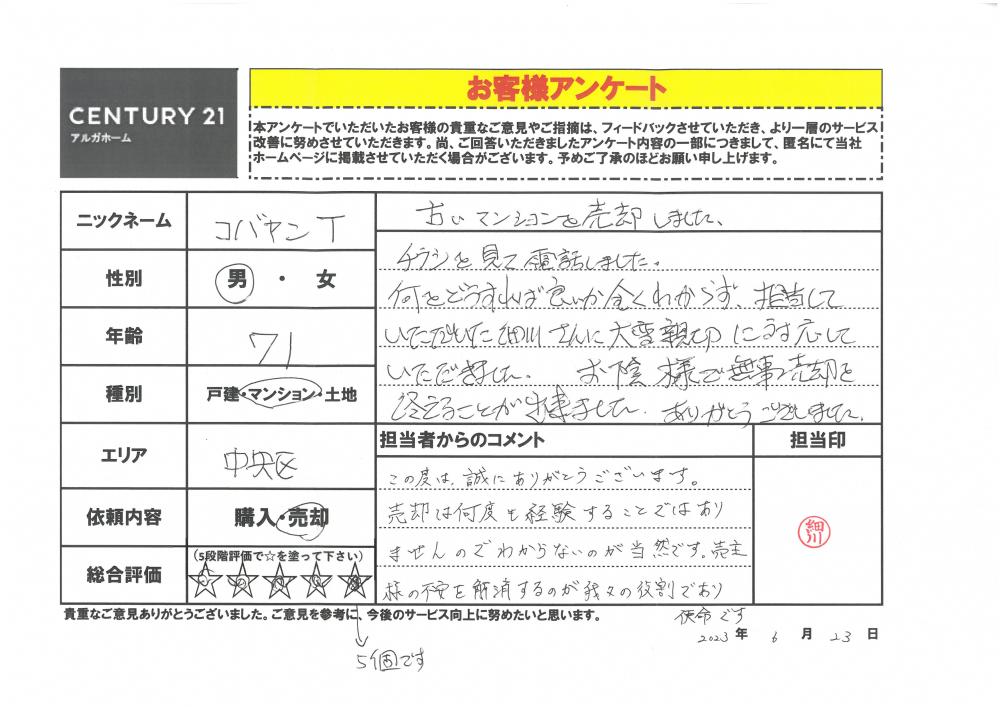 CENTURY 21
アルガホーム
お客様アンケート
本アンケートでいただいたお客様の貴重なご意見やご指摘は、フィードバックさせていただき、より一層のサービス
改善に努めさせていただきます。尚、ご回答いただきましたアンケート内容の一部につきまして、匿名にて当社
ホームページに掲載させていただく場合がございます。予めご了承のほどお願い申し上げます。
ニックネーム コバヤンT
性別 男・女
年齢 71
種別 戸建・マンション・土地
エリア 中央区
依頼内容 購入・売却
総合評価 (5段階評価で☆を塗って下さい)
☆☆☆☆☆
古いマンションを売却しました、
チラシを見て電話しました。
何をどうすれば良いか全くわからず、担当して
いただいた細川さんに大変親切に対応して
いただきました。お陰様で無事売却を
終えることが出来ました。ありがとうございました。
担当者からのコメント
この度は、誠にありがとうございます。
売却は何度も経験することではあり
ませんのでわからないのが当然です。売主
様の不安を解消するのが我々の役割であり
使命です
担当印
細川
貴重なご意見ありがとうございました。ご意見を参考に、今後のサービス向上に努めたいと思います。
2023年 6月 23日
5個です